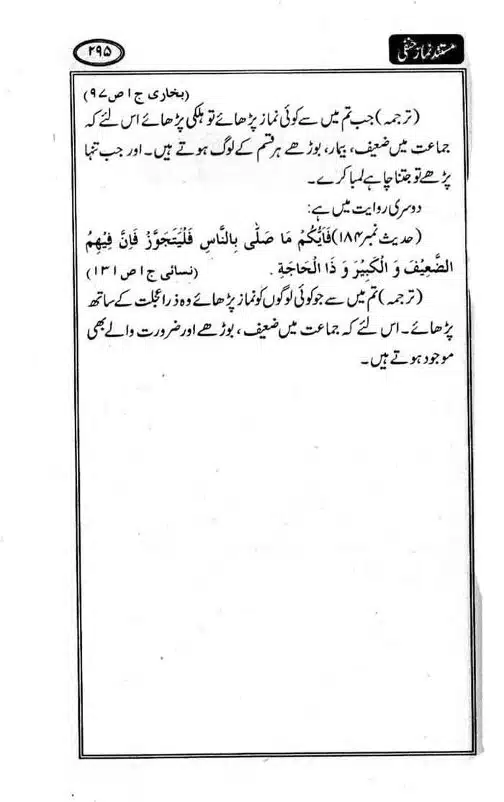 مستند نماز حنفی
۲۹۵
(بخاری ج ا ص ۹۷)
(ترجمہ) جب تم میں سے کوئی نماز پڑھائے تو ہلکی پڑھائے اس لئے کہ
جماعت میں ضعیف، بیمار، بوڑھے ہر قسم کے لوگ ہوتے ہیں۔ اور جب تنہا
پڑھے تو جتنا چاہے لمبا کرے۔
دوسری روایت میں ہے:
(حدیث نمبر ۱۸۴) فَاَیُّکُمْ مَا صَلّٰی بِالنَّاسِ فَلْیَتَجَوَّزْ فَاِنَّ فِیْھِمُ
الضَّعِیْفَ وَ الْکَبِیْرَ وَ ذَا الْحَاجَةِ . (نسائی ج ا ص ۱۳۱)
(ترجمہ) تم میں سے جو کوئی لوگوں کو نماز پڑھائے وہ ذرا عجلت کے ساتھ
پڑھائے۔ اس لئے کہ جماعت میں ضعیف، بوڑھے اور ضرورت والے بھی
موجود ہوتے ہیں۔